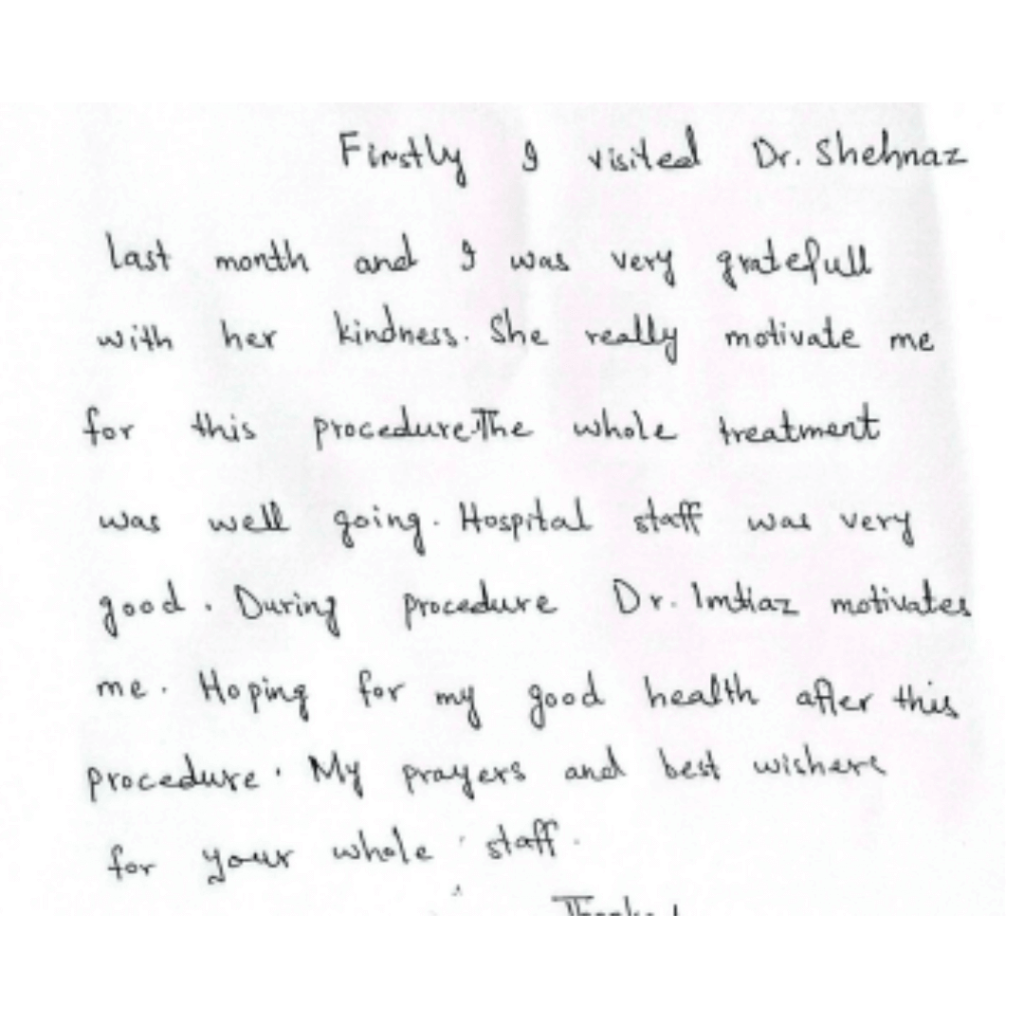 Firstly I visited Dr. Shehnaz
last month and I was very gratefull
with her kindness. She really motivate me
for this procedure. The whole treatment
was well going. Hospital staff was very
good. During procedure Dr. Imtiaz motivates
me. Hoping for my good health after this
procedure. My prayers and best wishers
for your whole staff.